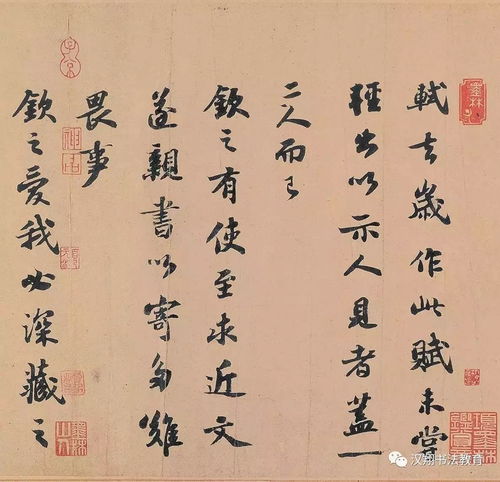 軾去歲作此賦未嘗
輕出以示人見者蓋一
二人而已
欽之有使至求近文
遂親書以寄多難
畏事
欽之愛我必深藏之
汉翔书法教育